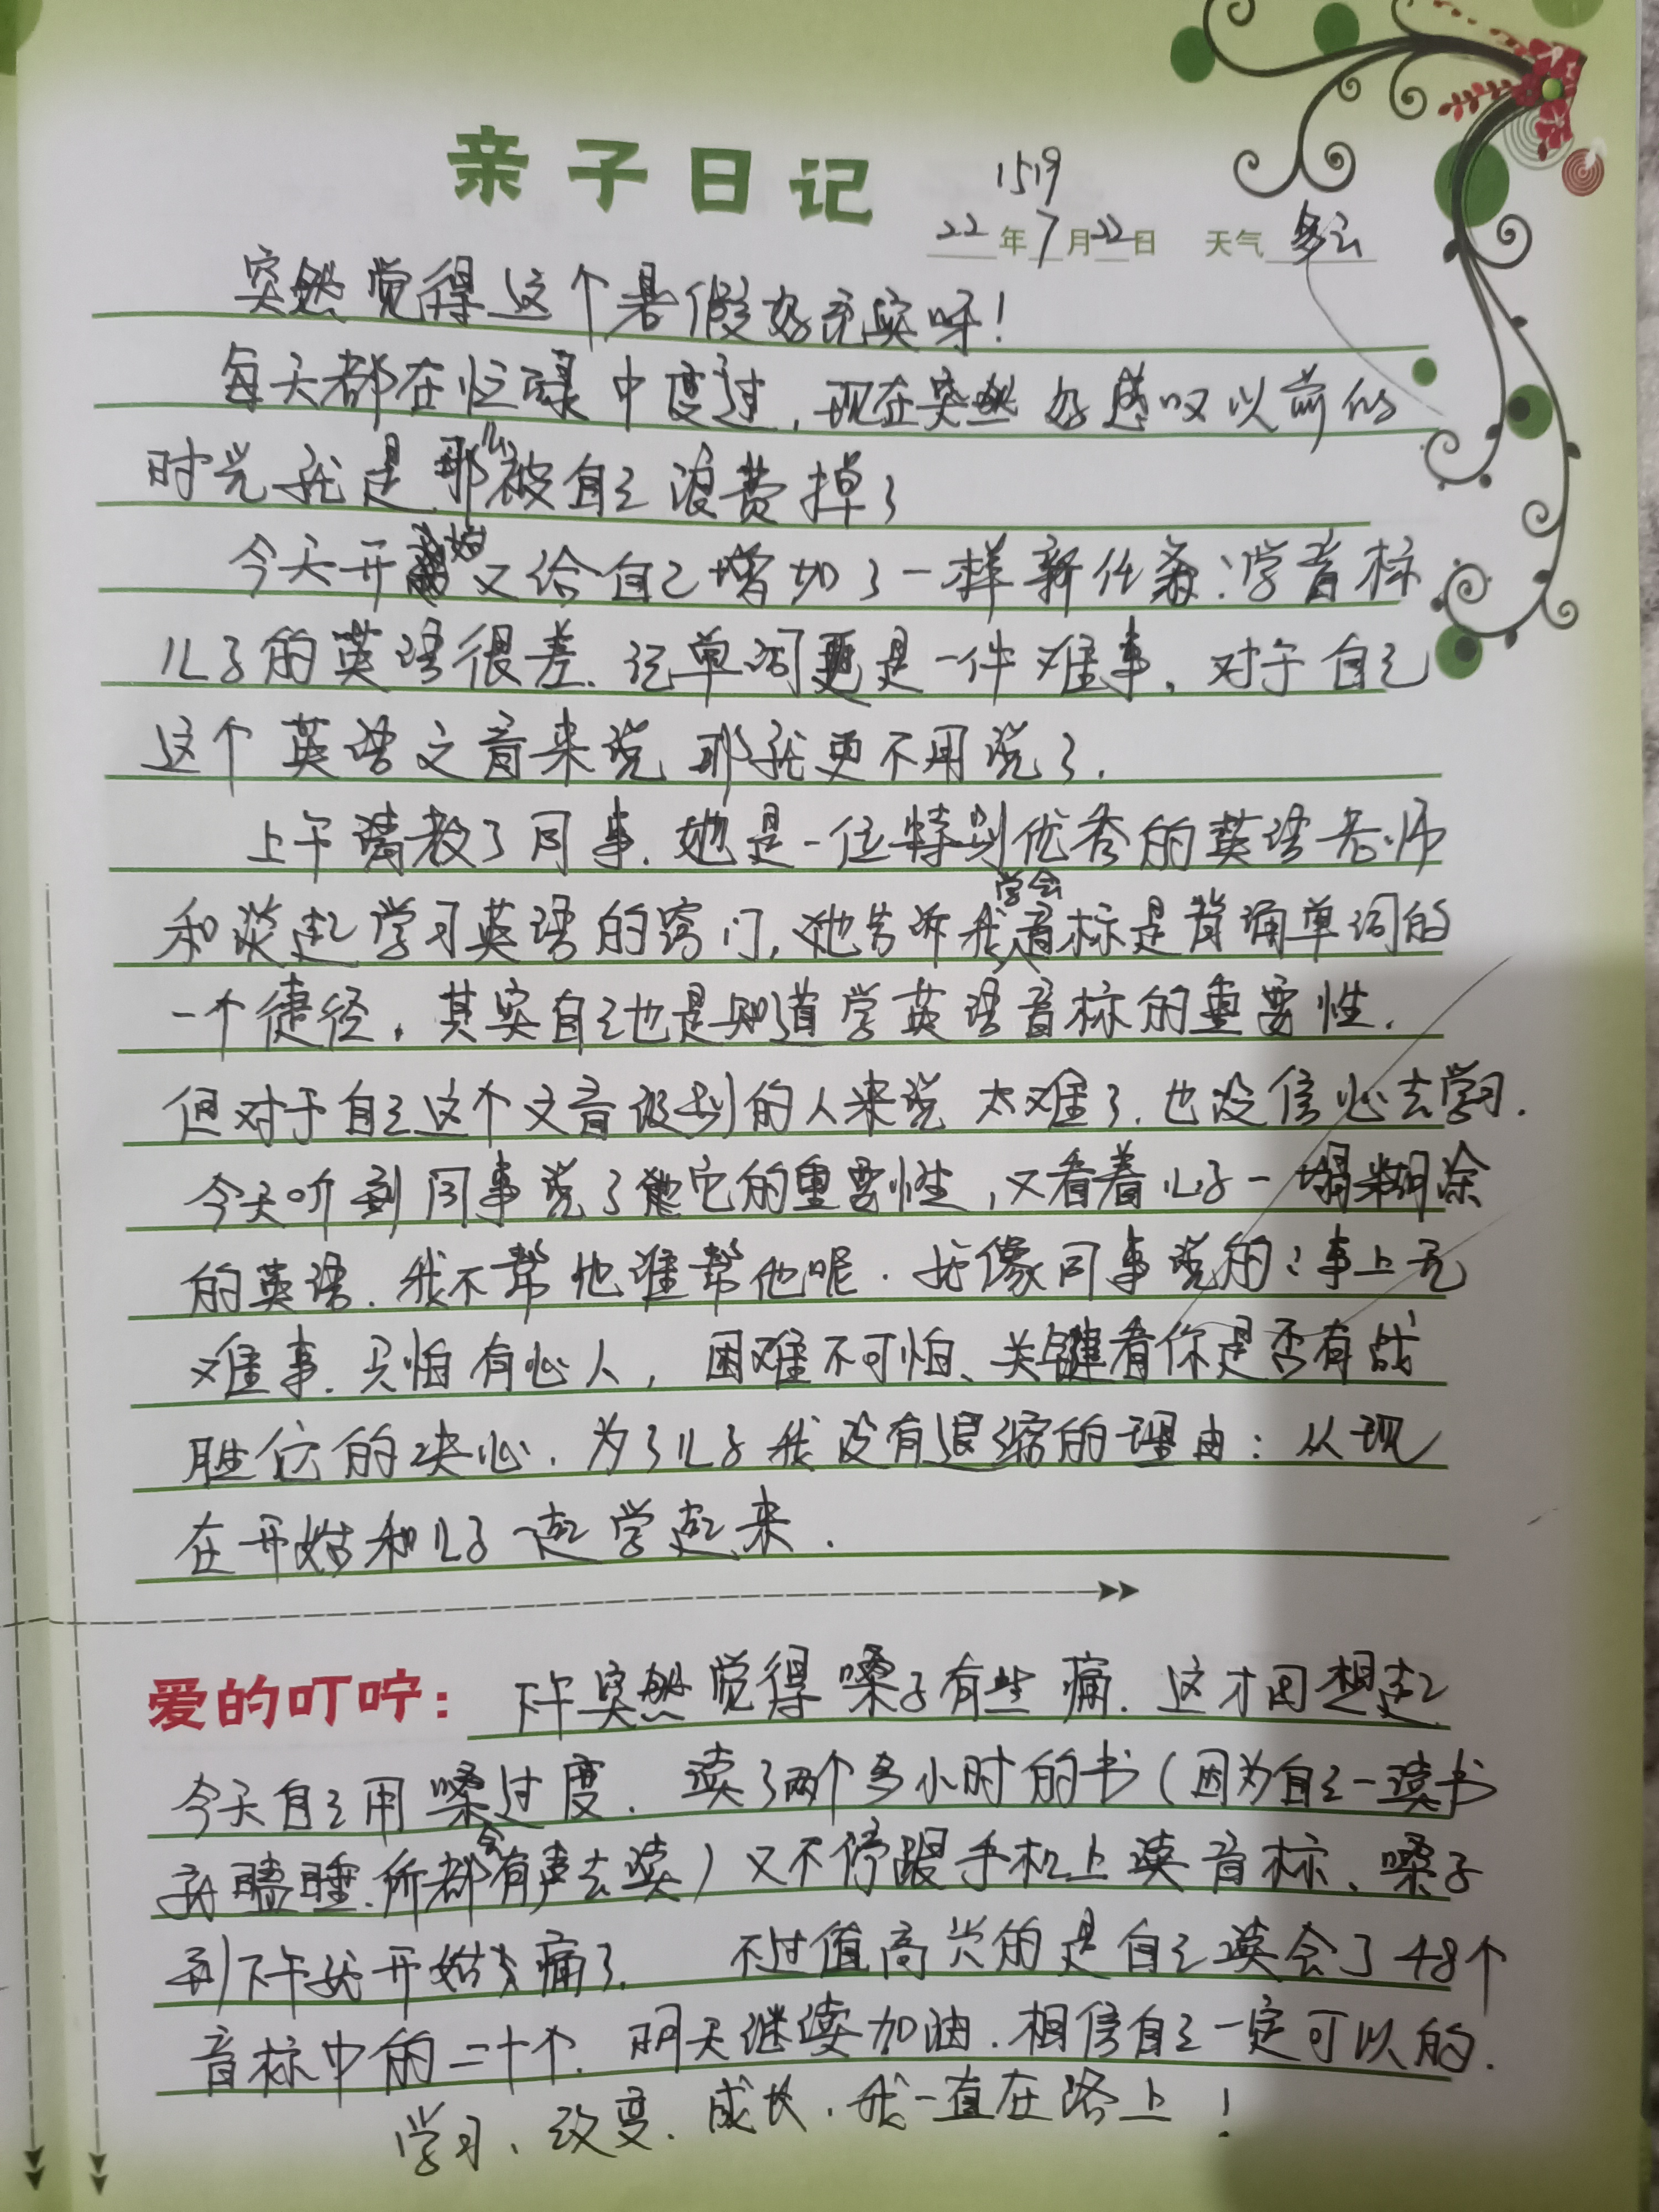 亲子日记
1519
22年7月22日 天气 多云
突然觉得这个暑假好充实呀！
每天都在忙碌中度过，现在突然好感叹以前的
时光就是那么被自己浪费掉了
今天开始又给自己增加了一样新任务：学音标
儿子的英语很差.记单词更是一件难事.对于自己
这个英语文盲来说 那就更不用说了.
上午请教了同事.她是一位特别优秀的英语老师
和谈起学习英语的窍门,她告诉我学会音标是背诵单词的
一个徒径.其实自己也是知道学英语音标的重要性.
但对于自己这个文盲级别的人来说 太难了.也没信心去学习.
今天听到同事说了它的重要性,又看着儿子一塌糊涂
的英语.我不帮他谁帮他呢.就像同事说的:事上无
难事.只怕有心人,困难不可怕、关键看你是否有战
胜它的决心.为了儿子我没有退缩的理由:从现
在开始和儿子一起学起来.
爱的叮咛：下午突然觉得嗓子有些痛.这才回想起
今天自己用嗓过度.读了两个多小时的书(因为自己一读书
就瞌睡.所都会有声去读)又不停跟手机上读音标、嗓子
到下午就开始痛了. 不过值高兴的是自己读会了48个
音标中的二十个.明天继续加油.相信自己一定可以的.
学习、改变.成长.我一直在路上！